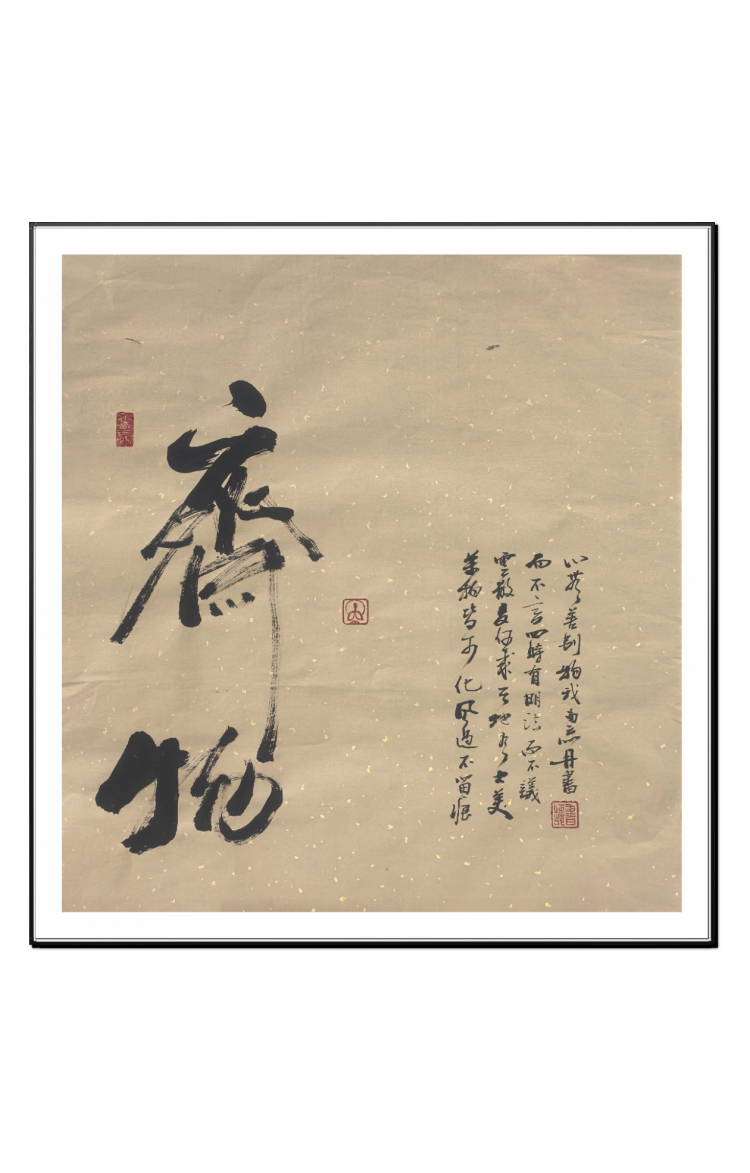 齊物
萬物皆可化風過不留痕
雲散复何求天地有大美
而不言四時有明法而不議
心善物我兩忘丹書